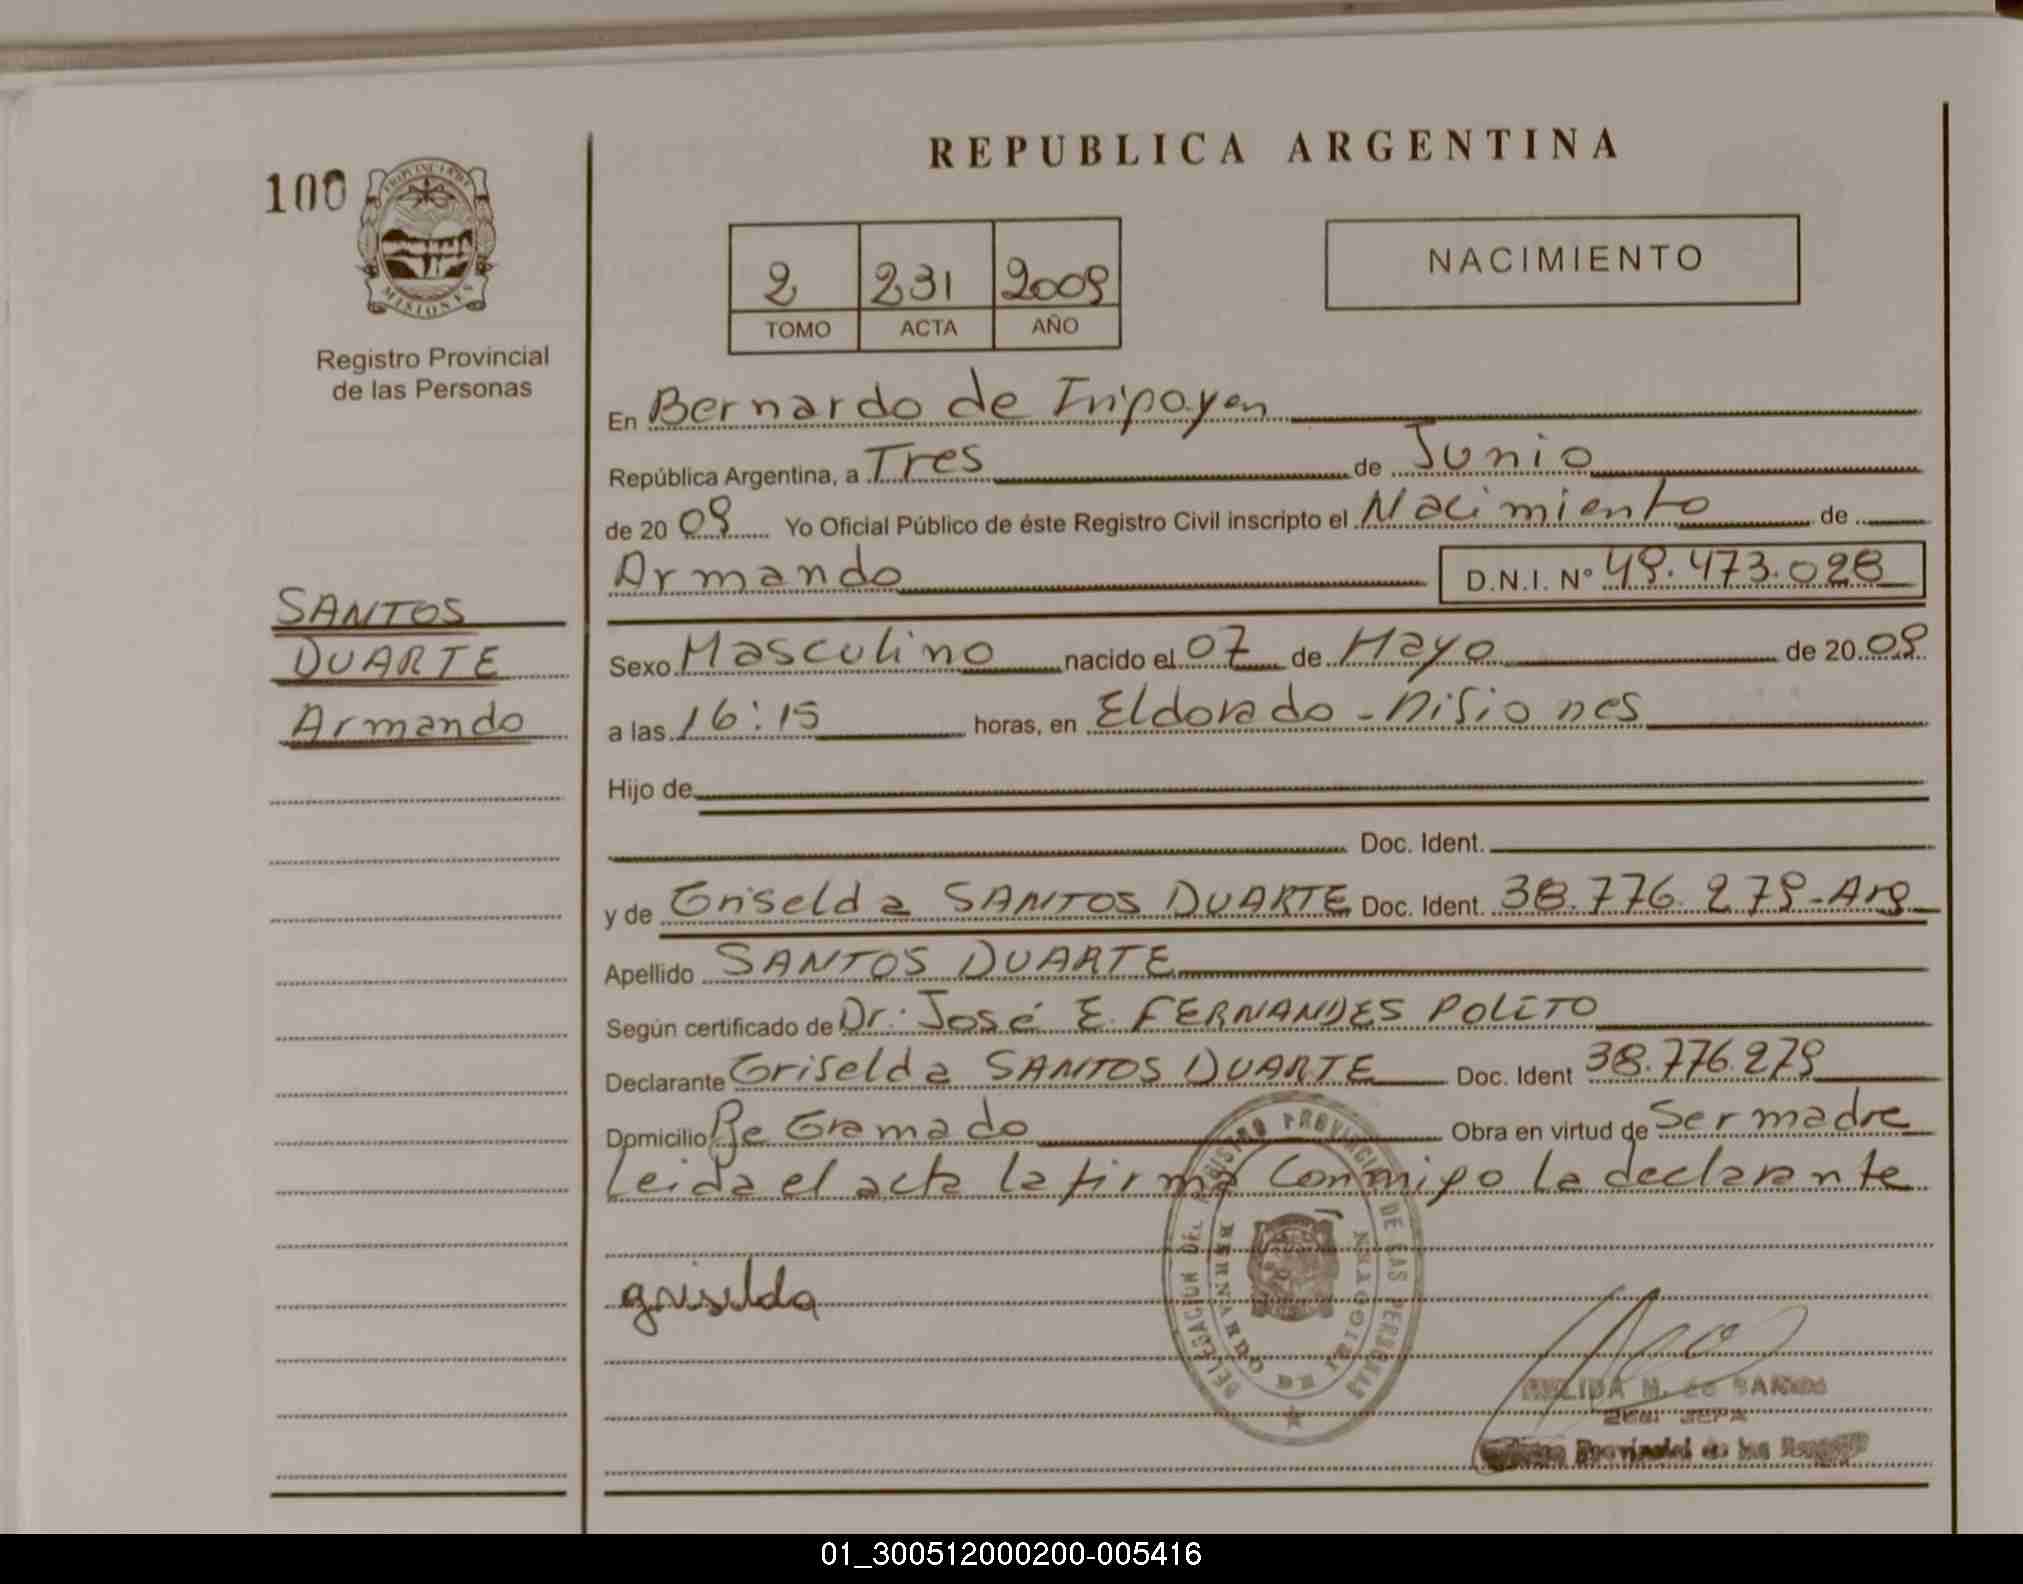 REPUBLICA ARGENTINA
100
PROVINCIA DE
MISIONES
Registro Provincial
de las Personas
2 231 2009
TOMO ACTA AÑO
NACIMIENTO
En Bernardo de Irigoyen
República Argentina, a Tres de Junio
de 20 09 Yo Oficial Público de éste Registro Civil inscripto el Nacimiento de
Armando D.N.I. Nº 49.473.028
SANTOS
DUARTE
Armando
Sexo Masculino nacido el 07 de Mayo de 20 09
a las 16:15 horas, en Eldorado - Misiones
Hijo de
Doc. Ident.
y de Griselda SANTOS DUARTE Doc. Ident. 38.776.279-Arg
Apellido SANTOS DUARTE
Según certificado de Dr. José E. FERNANDES POLITO
Declarante Griselda SANTOS DUARTE Doc. Ident 38.776.279
Domicilio Pje Gramado Obra en virtud de Ser madre
Leida el acta la firma conmigo la declarante
griselda
DELEGACION DEL REGISTRO PROVINCIAL DE LAS PERSONAS
BERNARDO DE IRIGOYEN
Provincial de las
01_300512000200-005416